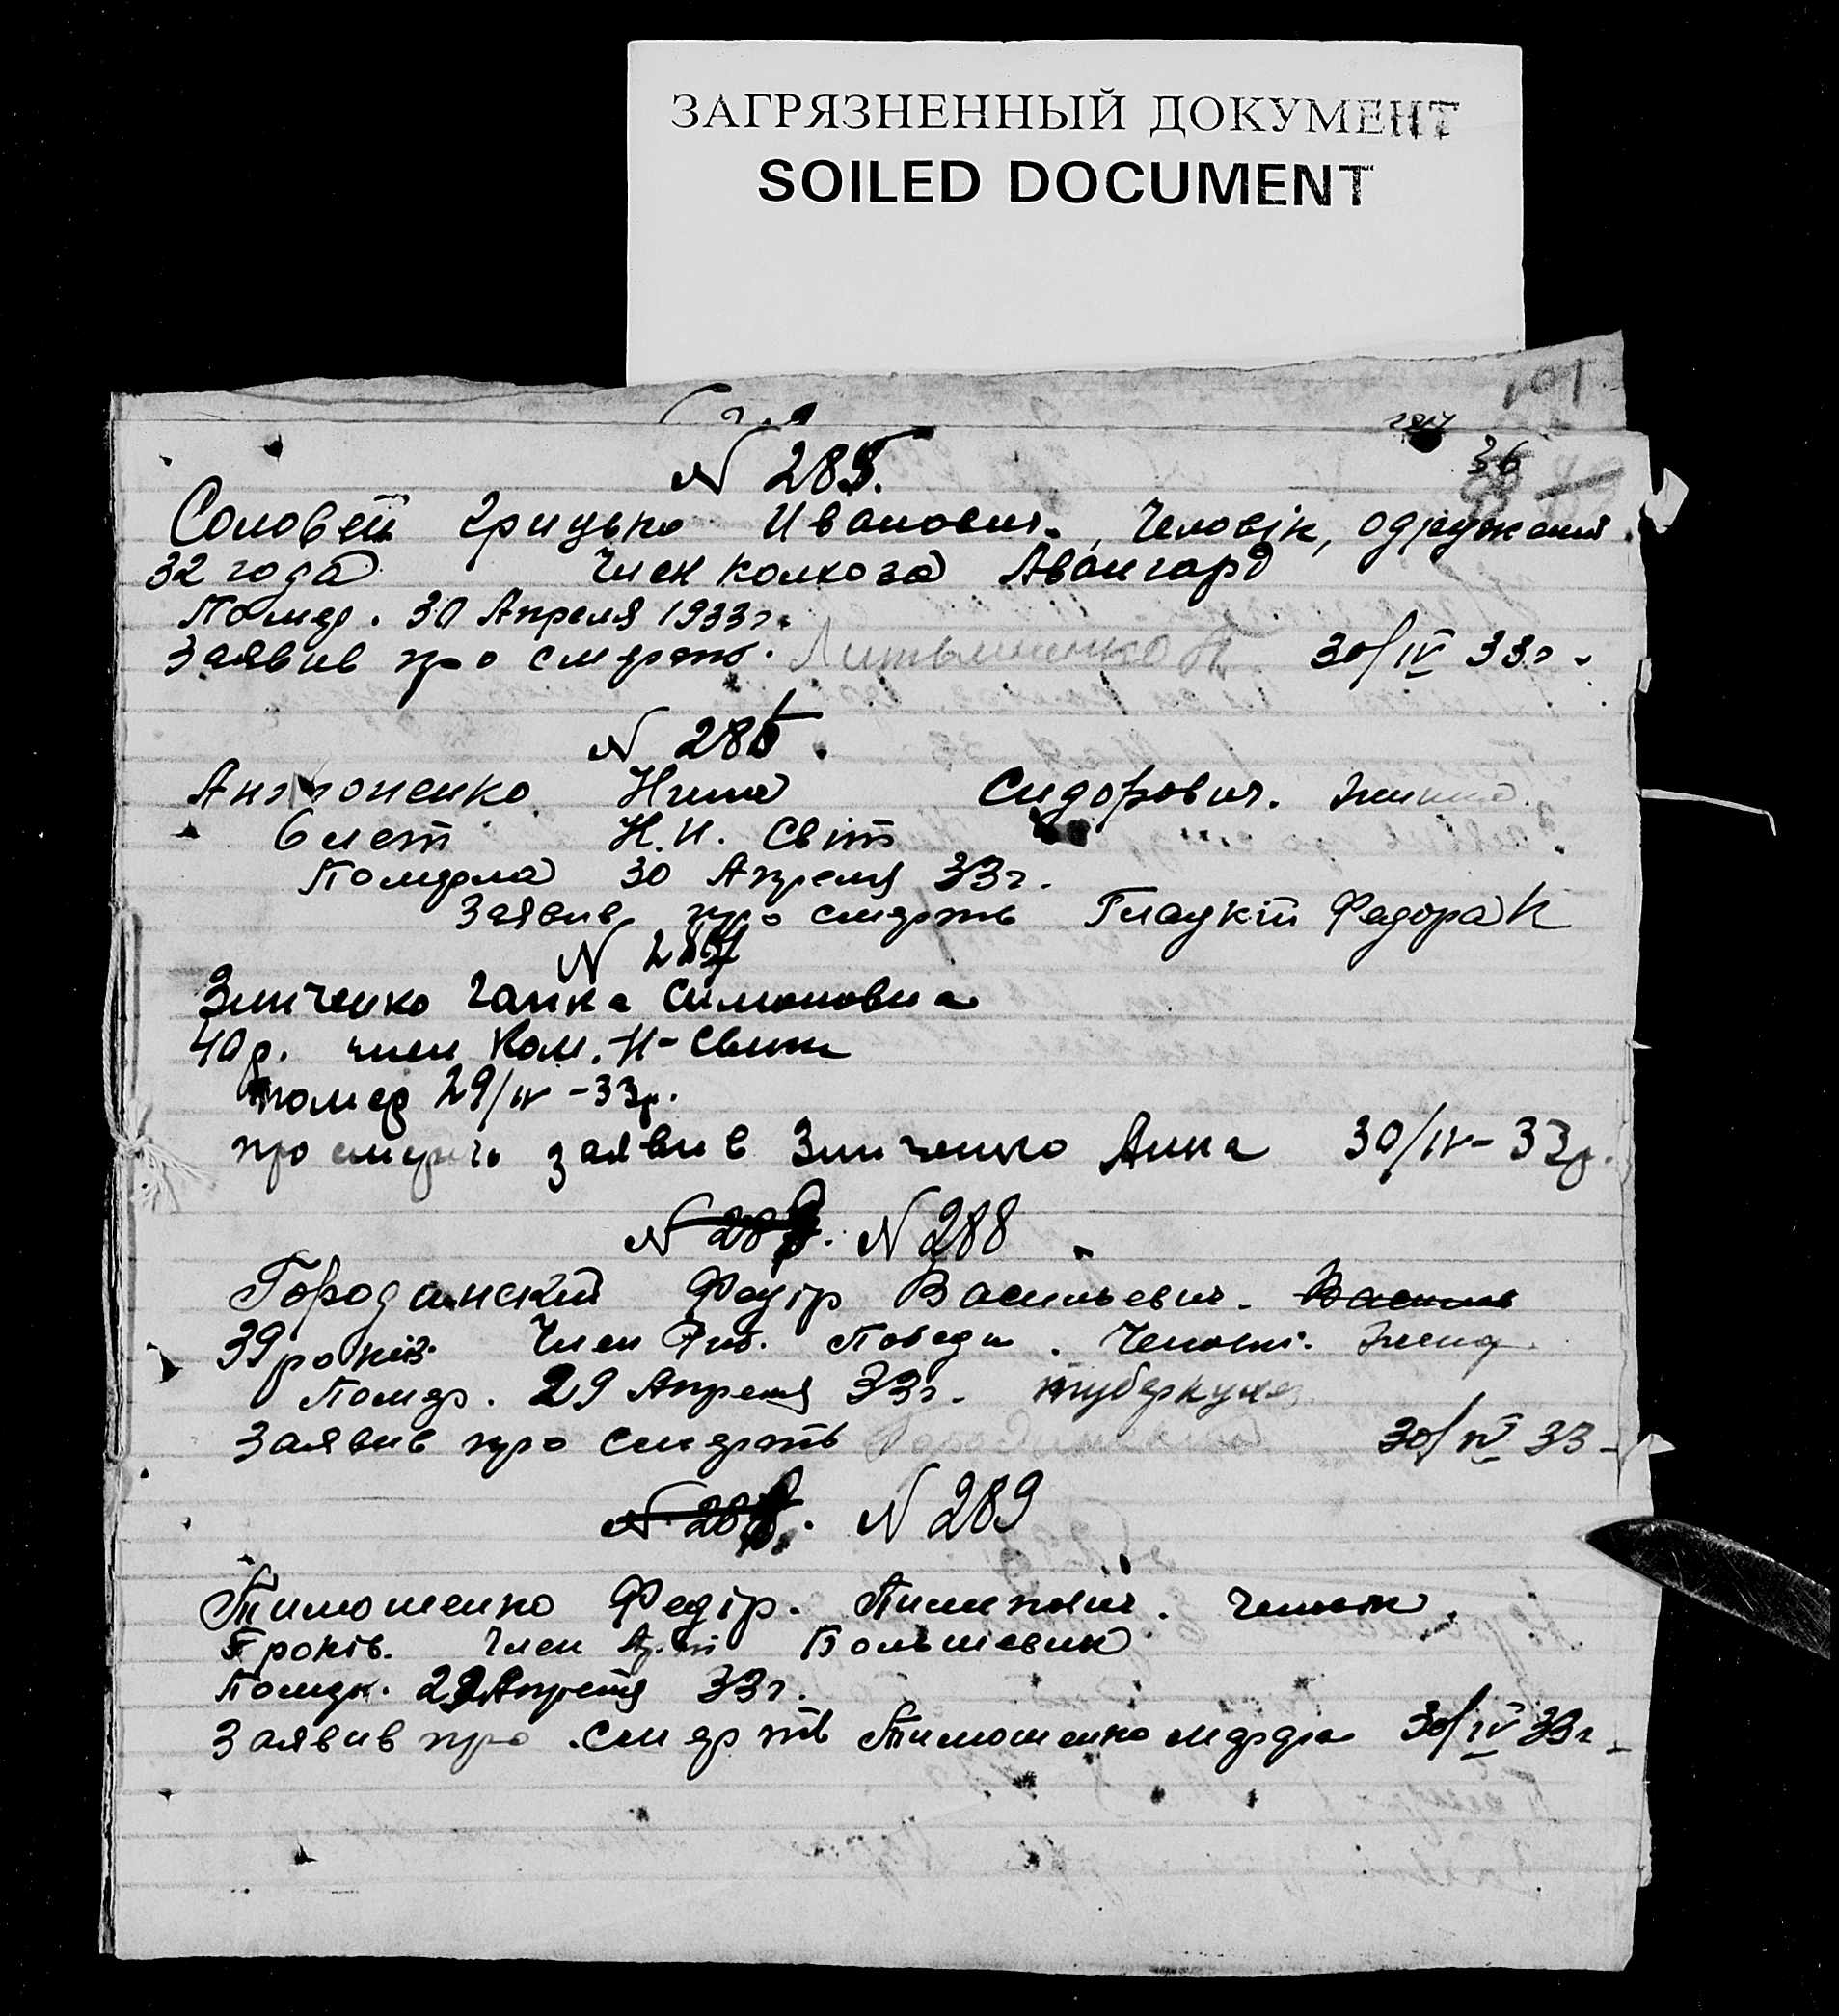 ЗАГРЯЗНЕННЫЙ ДОКУМЕНТ
SOILED DOCUMENT
101
36
N 285.
Соловей Грицько Иванович., Человік, одружаний.
32 года Член колхоза Авангард
Помер. 30 Апреля 1933г.
Заявив про смерть. 30/IV 33г.
N 286.
Антоненко Нина Сидорович. Жинка.
6 лет Н.И. Світ
Померла 30 Апреля 33г.
Заявив про смерть Гладкій Федора К
N 287
Зинченко Ганна Симоновна
40 р. член Ком. Н-Свит
помер 29/IV-33р.
про смерть заявив Зинченко Анна 30/IV-33р.
N 288
Федір Васильевич. Василь
39 років. Член Победа. Человік.
Помер. 29 Апреля 33г. туберкулез
Заявив про смерть 30/IV 33
N 289
Тимошенко Федір. Пилипович. Человік.
років. Член Арт Большевик
Помер. 29 Апреля 33г.
Заявив про смерть Тимошенко 30/IV 33г.